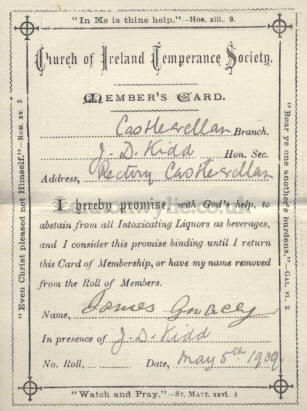 "In Me is thine help."—Hos. xiii. 9.
Church of Ireland Temperance Society.
Member's Card.
Castlewellan Branch.
J. D. Kidd Hon. Sec.
Address, Rectory Castlewellan
I hereby promise, with God's help, to
abstain from all Intoxicating Liquors as beverages,
and I consider this promise binding until I return
this Card of Membership, or have my name removed
from the Roll of Members.
Name, James
In presence of J. D. Kidd
No. Roll, Date, May 5th 1909.
"Watch and Pray."—St. Matt. xxvi. 4
"Even Christ pleased not Himself."—Rom. xv. 3
"Bear ye one another's burdens."—Gal. vi. 2